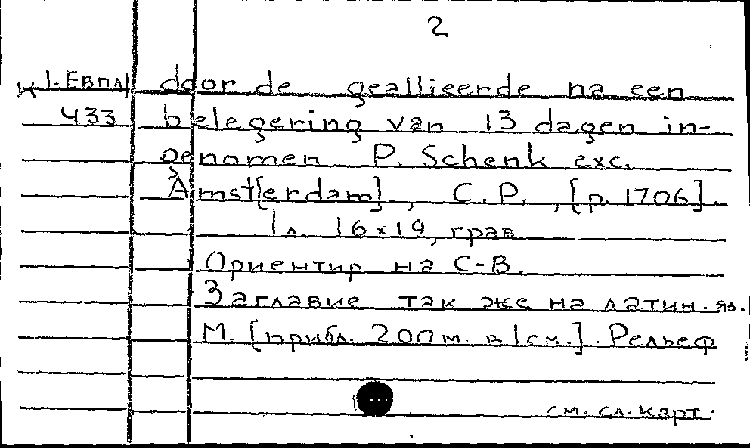 2
К 1-Евпл door de geallieerde na een
433 belegering van 13 dagen in-
genomen P. Schenk exc.
Amst[erdam], C.P., [p. 1706].
1 л. 16x19, грав.
Ориентир на С-В.
Заглавие так же на латин. яз.
М. [прибл. 200 м. в 1 см.]. Рельеф
см. сл. карт.